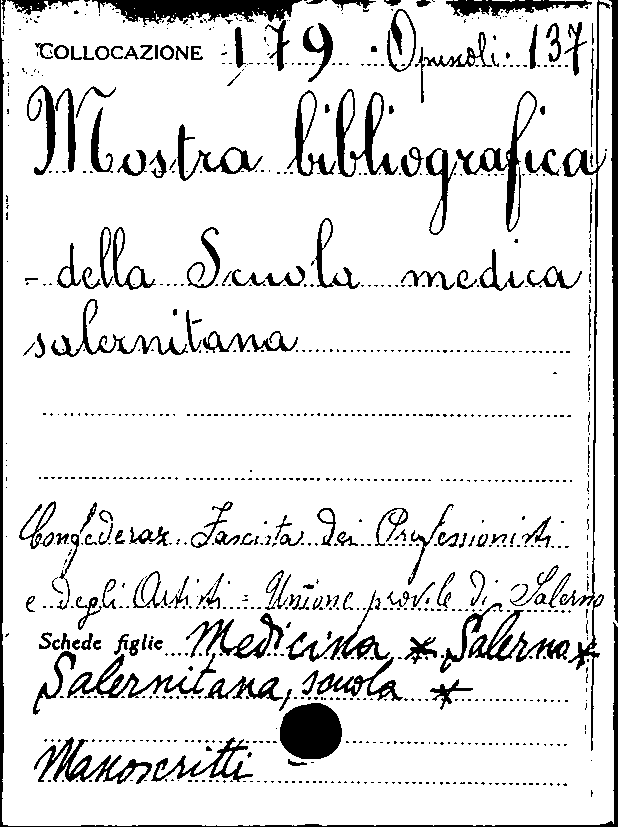 COLLOCAZIONE 179 · Opuscoli · 137
Mostra bibliografica
- della Scuola medica
salernitana
Confederaz. Fascista dei Professionisti
e degli Artisti = Unione prov.le di Salerno
Schede figlie Medicina * Salerno *
Salernitana, scuola *
Manoscritti